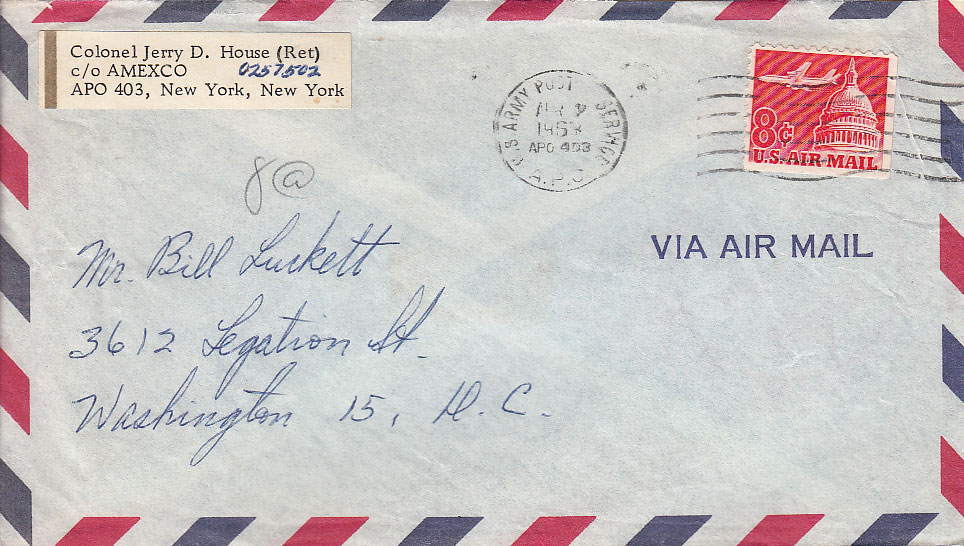 Colonel Jerry D. House (Ret)
c/o AMEXCO 0257502
APO 403, New York, New York
U.S. ARMY POST SERVICE
APO 403
A.P.O.
8¢
U.S. AIR MAIL
8@
VIA AIR MAIL
Mr. Bill Luckett
3612 Legation St.
Washington 15, D.C.